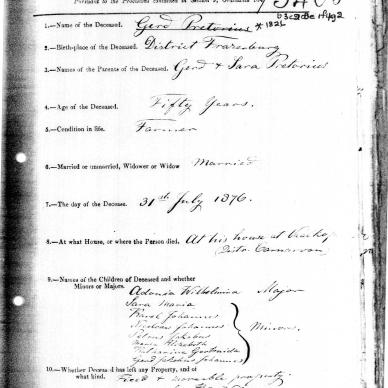 Pursuant to the Provisions contained in Section
1.—Name of the Deceased. Gerd Pretorius * 1826
2.—Birth-place of the Deceased. District Frazerburg
3.—Names of the Parents of the Deceased. Gerd & Sara Pretorius
4.—Age of the Deceased. Fifty Years.
5.—Condition in life. Farmer
6.—Married or unmarried, Widower or Widow Married
7.—The day of the Decease. 31st July 1876.
8.—At what House, or where the Person died. At his house at
Distr Carnarvon
9.—Names of the Children of Deceased and whether
Minors or Majors.
Adonia Wilhelmina Major
Sara Maria
Johannes
Nicolaas Johannes
Petrus Jakobus
Maria Elizabeth
Gertruida
Gerd Jakobus Johannes
Minors.
10.—Whether Deceased has left any Property, and of
what kind. Fixed & movable property